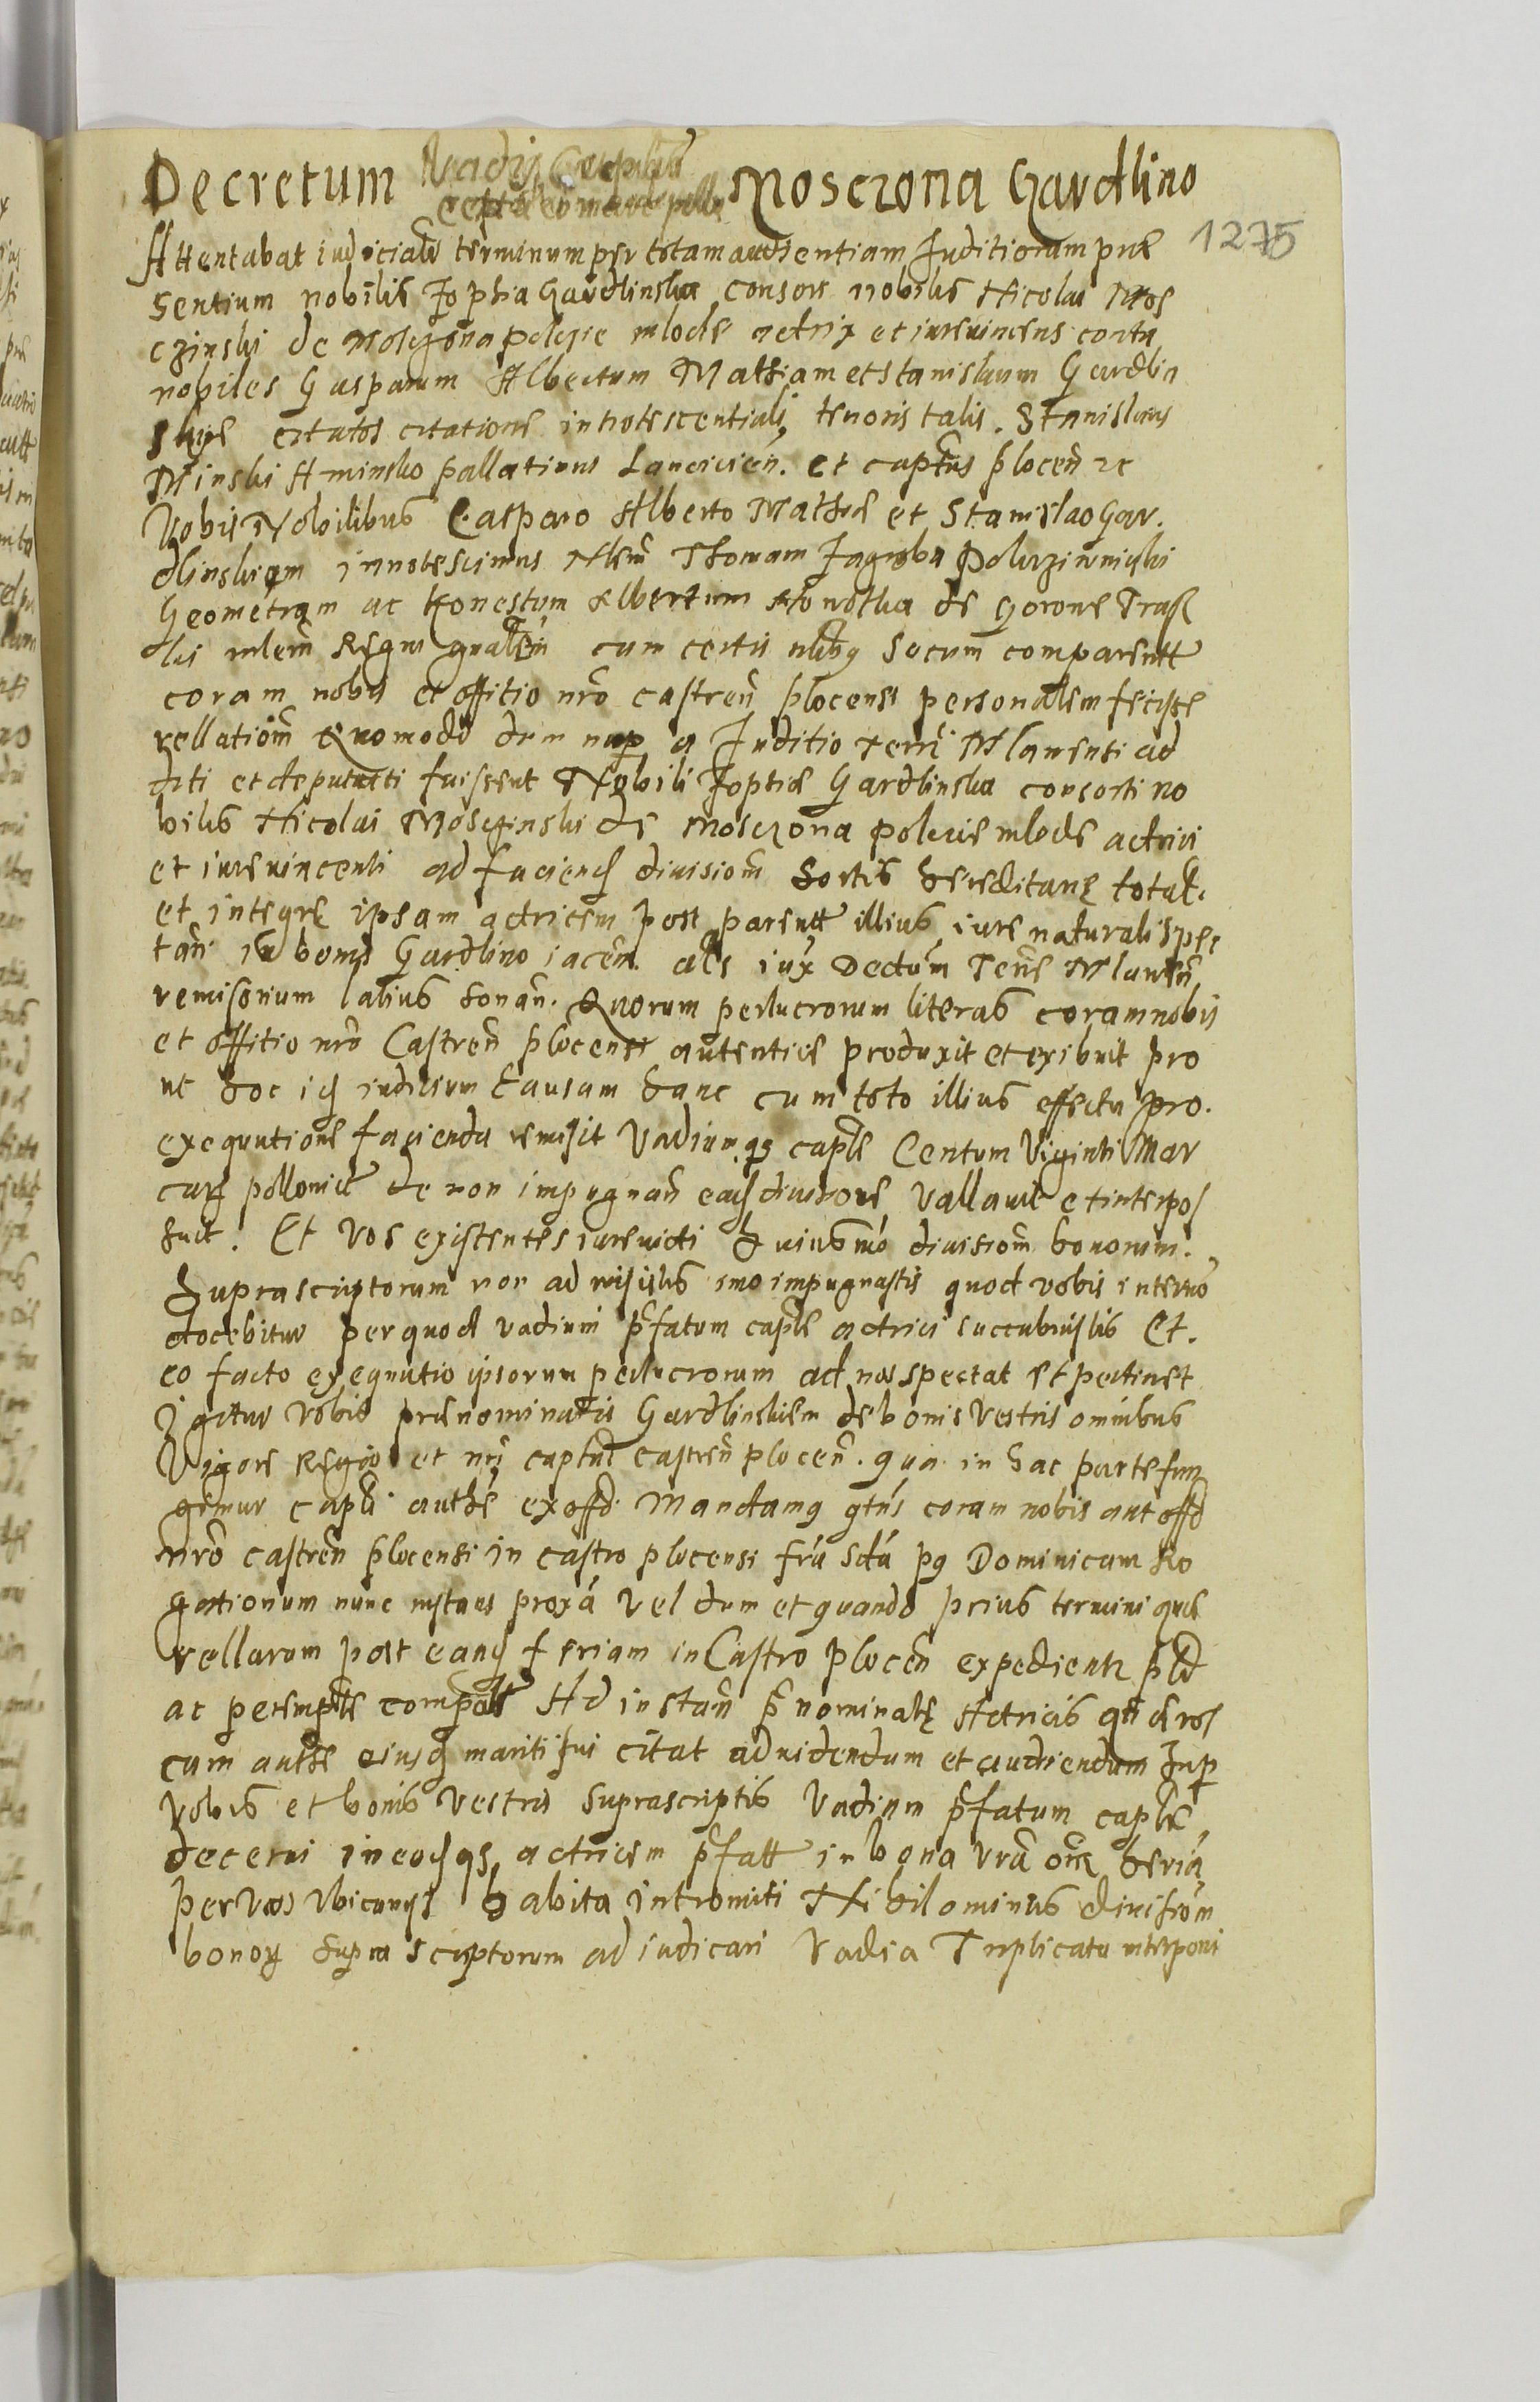 Decretum Vadij Mosczona Gardlino
1275
Attentabat iudicialr terminum per totam audientiam Juditiorum præ
sentium nobilis Zophia Gardlinska consors nobilis Nicolai Mos
czinski de Mosczona pelcie mlode actrix et iurevincens contra
nobiles Gasparum Albertum Mathiam et Stanislaum Gardlin
skye citatos citatione innotescentiali tenoris talis. Stanislaus
Minski A minsko pallatinus Lancicien. et captus plocen̄ rc
Vobis Nobilibus Casparo Alberto Mathie et Stanislao Gar.
dlinskiem innotescimus Nlem̄ Thomam Jagroba
Geometram ac honestum Albertum de Gorone
mlem̄ Regni gnalem̄ cum certis nlibq secum comparentt
coram nobis et offitio nrō castren̄ plocensi personalem fecisse
rellationē Quomodo dum nup a Juditio terrē Mlauensi ad
diti et deputatti fuissent Nobili Zophiæ Gardlinska consorti no
bilis Nicolai Mosczinski de Mosczona pelcie mlode actrici
et iurevincenti ad faciend divisionē sortis hereditarię total.
et integrę ipsam actricem post parentt illius iure naturali spec
tan̄ in bonis Gardlino iacen̄. als iux Dectum Terrē Mlauen̄
remissorium latius sonan̄. Quorum perlucrorum literas coram nobis
et offitio nrō Castren̄ plocensi autentice produxit et exibuit pro
ut hoc id iudicium causam hanc cum toto illius effectu pro.
exequutione facienda remisit Vadiumqs caple Centum Viginti Mar
carum pollonicl de non impugnan̄ ead divisione vallauit et interpo
suit. Et vos existentes iurevicti huiusmō divisionē bonorum.
Suprascriptorum non admisistis imo impugnastis quod vobis in termō
docebitur per quod vadium p̄fatum caple actrici succubuistis Et.
eo facto exequutio ipsorum perlucrorum ad nos spectat et pertinet
Igitur vobis prænominatis Gardlinskiem de bonis vestris omnibus
Vigore Regio et nrī captus castren̄ plocen̄. qua in hac parte fun
gimur capli authē ex offo Mandamq qtus coram nobis aut offo
nrō castren̄ plocensi in castro plocensi fria scda pq Dominicam Ro
gationum nunc instans proxa vel dum et quando prius termini que
rellarum post eand feriam in Castro plocen̄ expedientr
ac peremptle Ad instan̄ p̄nominatę Actricis
cum authe eiusd mariti sui citat ad videndum et audiendum sup
vobis et bonis vestris suprascriptis Vadium p̄fatum caple
decerni in eodqs actricem p̄fatt in bona vrā omā heria
per vos ubicunqs habita intromitti Nihilominus divisionē
bonor suprascriptorum adiudicari Vadia Triplicata interponi